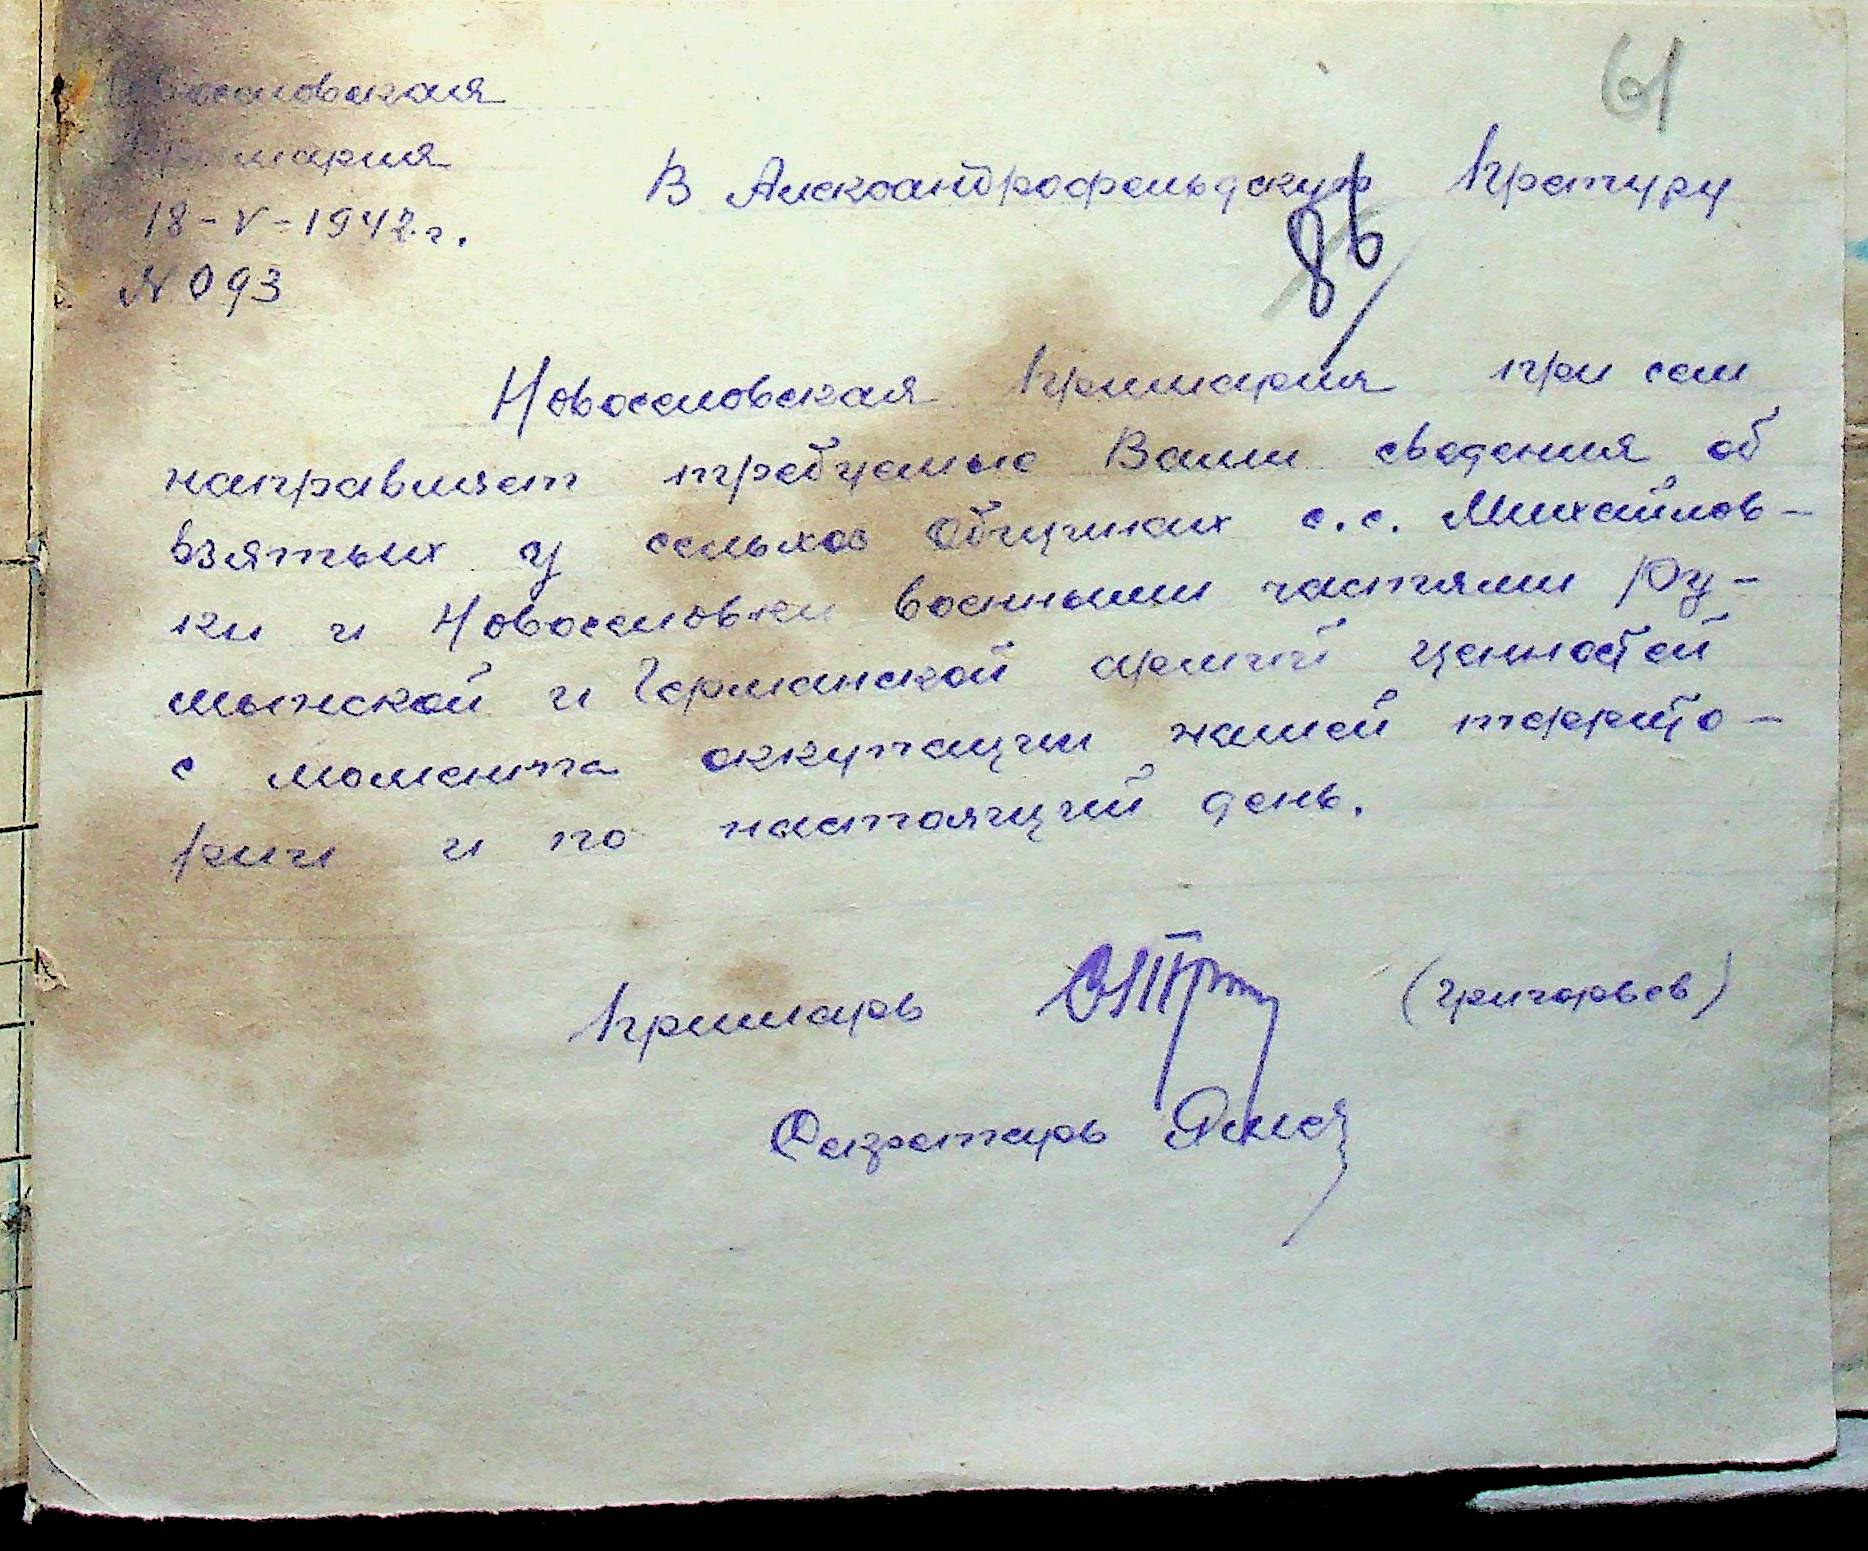 61
Новоселовская
Примария
18-V-1942 г.
N 093
В Александрофельдскую Претуру
86
Новоселовская Примария при сем
направляет требуемые Вами сведения об
взятых у сельхоз Общинах с.с. Михайлов-
ки и Новоселовки военными частями Ру-
мынской и Германской армий ценностей
с момента оккупации нашей террито-
рии и по настоящий день.
Примарь (Григорьев)
Секретарь